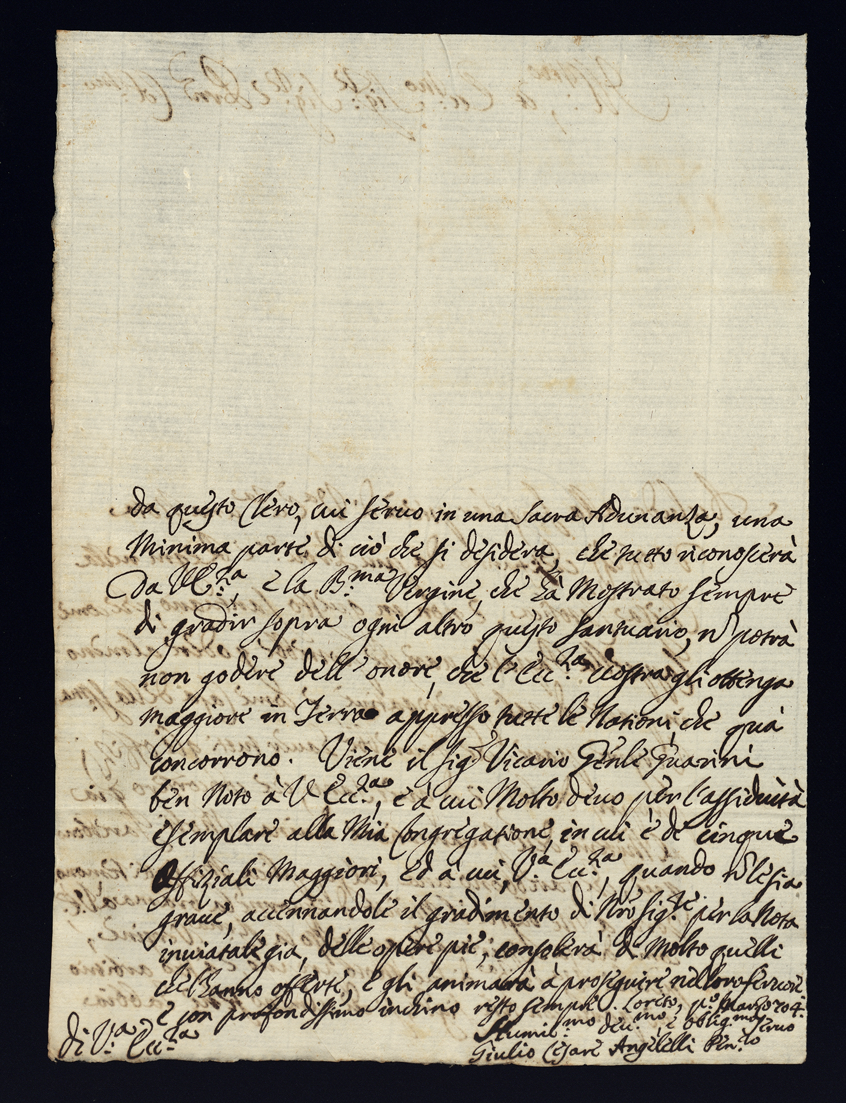 da questo Clero, cui servo in una Sacra Adunanza, una
Minima parte di ciò che si desidera, che tutto riconoscerà
Da VE:za, e la B:ma Vergine, che hà Mostrato sempre
di gradir sopra ogni altro questo Santuario, nō potrà
non godere dell'onore, che l'Ecc:za Vostra gli ottenga
maggiore in Terra appresso tutte le Nationi, che quà
concorrono. Viene il Sig:r Vicario Gen̄le Guarini
ben Noto à V Ecc:za, e à cui Molto devo per l'assiduità
esemplare alla Mia Congregatione, in cui è de cinque
Offiziali Maggiori, ed à cui, V:a Ecc:za, quando nō le sia
grave, accennandole il gradimento di Nro Sig:re per la Nota
inviatale già, delle opere pie, consolerà di Molto quelli
che l'hanno offerte, e gli animarà à proseguire nel loro fervore
e con profondissimo inchino resto sempre. Loreto, p:o Marzo 704.
di V:a Ecc:za
Humil:mo dev:mo, e oblig:mo servo
Giulio Cesare Angelelli Pen:ro